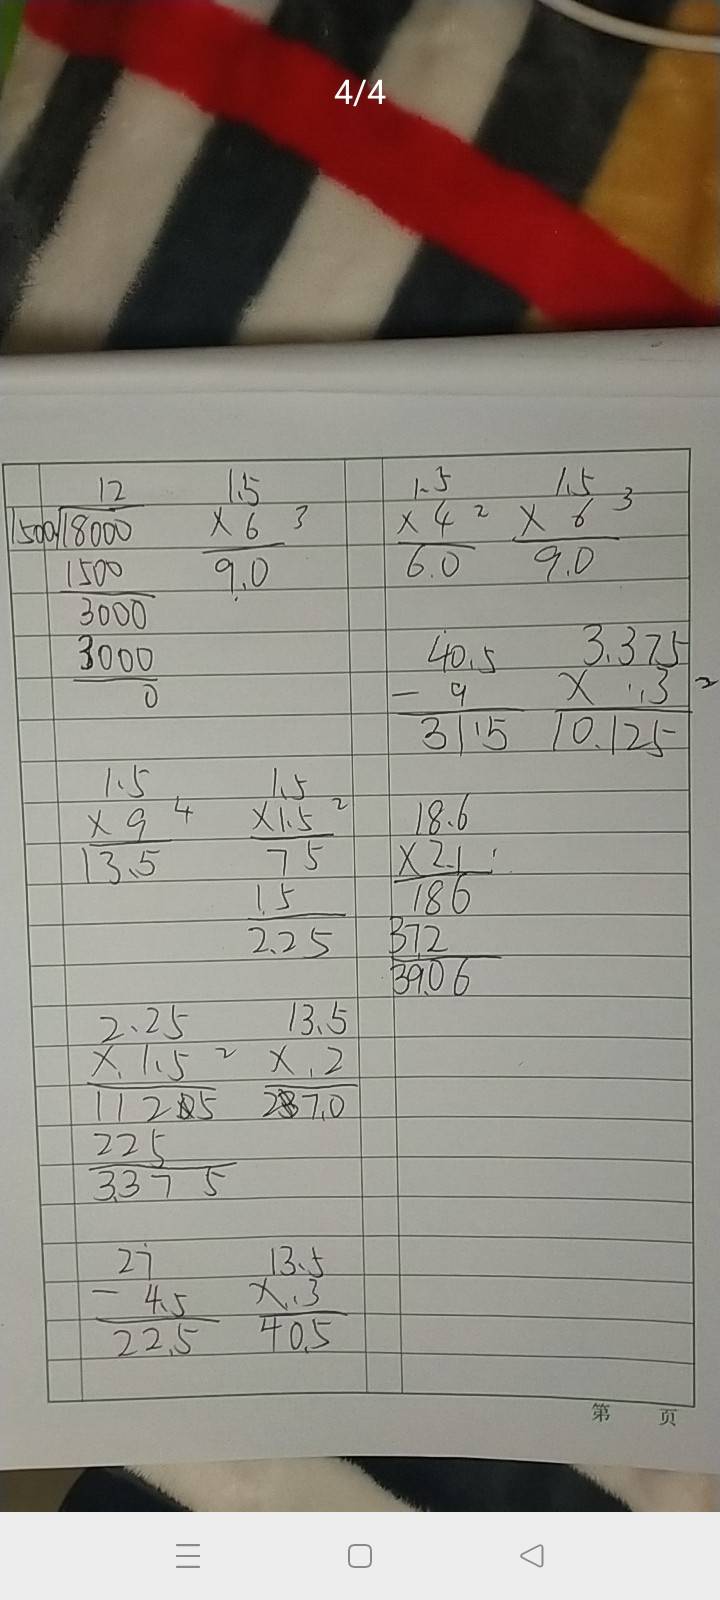 4/4
12
1500 18000
1500
3000
3000
0
1.5
× 6 3
9.0
1.5
× 4 2
6.0
1.5
× 6 3
9.0
40.5
- 9
31.5
3.375
× .3 2
10.125
1.5
× 9 4
13.5
1.5
×1.5 2
75
1.5
2.25
18.6
×2.1
186
37.2
39.06
2.25
×.1.5 2
225
3.37 5
13.5
×.2
27
- 4.5
22.5
13.5
×.3
40.5
第 页